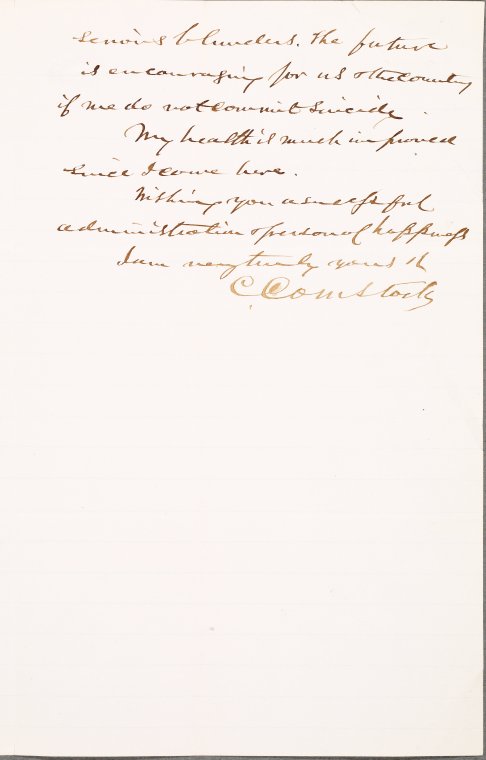 serious blunders. The future
is encouraging for us & the country
if we do not commit suicide.
My health is much improved
since I came here.
Wishing you a successful
administration & personal happiness
I am very truly yours &c
C Comstock